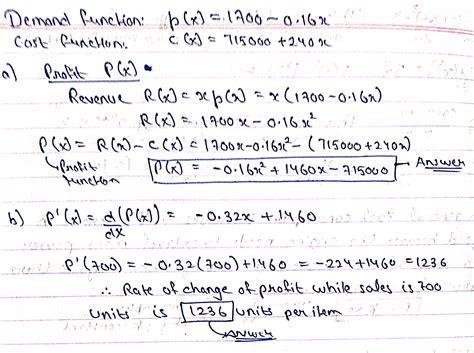 Demand function: p(x) = 1700 - 0.16x
Cost function: c(x) = 715000 + 240x
a) Profit P(x)
Revenue R(x) = x p(x) = x (1700 - 0.16x)
R(x) = 1700x - 0.16x²
P(x) = R(x) - c(x) = 1700x - 0.16x² - (715000 + 240x)
Profit function
P(x) = -0.16x² + 1460x - 715000 Answer
b) P'(x) = d/dx (P(x)) = -0.32x + 1460
P'(700) = -0.32(700) + 1460 = -224 + 1460 = 1236
∴ Rate of change of profit while sales is 700
units is 1236 units per item
Answer